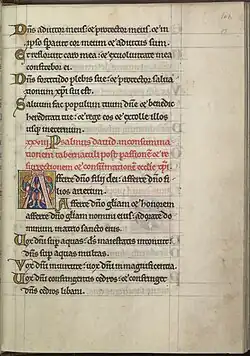 Dñs adiutor meus ⁊ protector meus ⁊ in
ipso sperauit cor meum ⁊ adiutus sum
Et refloruit caro mea ⁊ ex uoluntate mea
confitebor ei
Dñs fortitudo plebis sue ⁊ protector salua
tionum xp̄i sui est
Saluum fac populum tuum dñe ⁊ benedic
hereditati tue ⁊ rege eos ⁊ extolle illos
usq; in eternum
xxviii Psalmus dauid in consumma
tionem tabernaculi post passionē ⁊ re
surrectionem
Afferte dño filii dei afferte dño fi
lios arietum
Afferte dño gliam ⁊ honorem
afferte dño gliam nomini eius adorate do
minum in atrio sancto eius
Uox dñi sup aquas ds maiestatis intonuit
dñs sup aquas multas
Uox dñi in uirtute uox dñi in magnificentia
Uox dñi confringentis cedros ⁊ confringet
dñs cedros libani